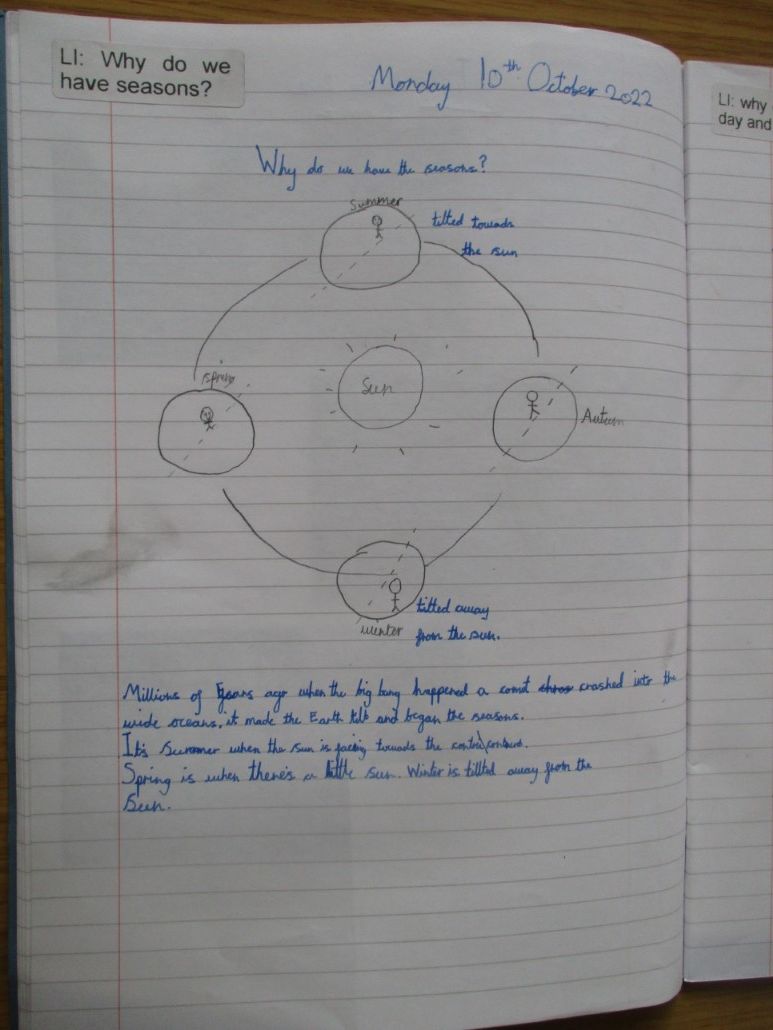 LI: Why do we
have seasons?
Monday 10th October 2022
LI: why
day and
Why do we have the seasons?
Summer
tilted towards
the sun
Sun
spring
Autum
winter
tilted away
from the sun.
Millions of years ago when the big bang happened a comit crashed into the
wide oceans, it made the Earth tilt and began the seasons.
It's Summer when the sun is facing towards the
Spring is when there's a little sun. Winter is tillted away from the
Sun.